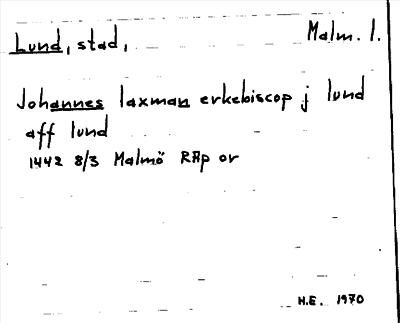 Lund, stad, Malm. l.
Johannes laxman erkebiscop j lund
aff lund
1442 8/3 Malmö RAp or
H.E. 1970